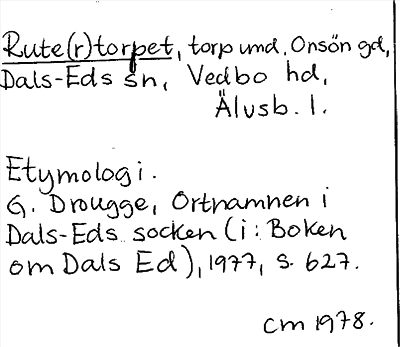 Rute(r)torpet, torp und. Onsön gd,
Dals-Eds sn, Vedbo hd,
Älvsb. l.
Etymologi.
G. Drougge, Ortnamnen i
Dals-Eds socken (i: Boken
om Dals Ed), 1977, s. 627.
CM 1978.